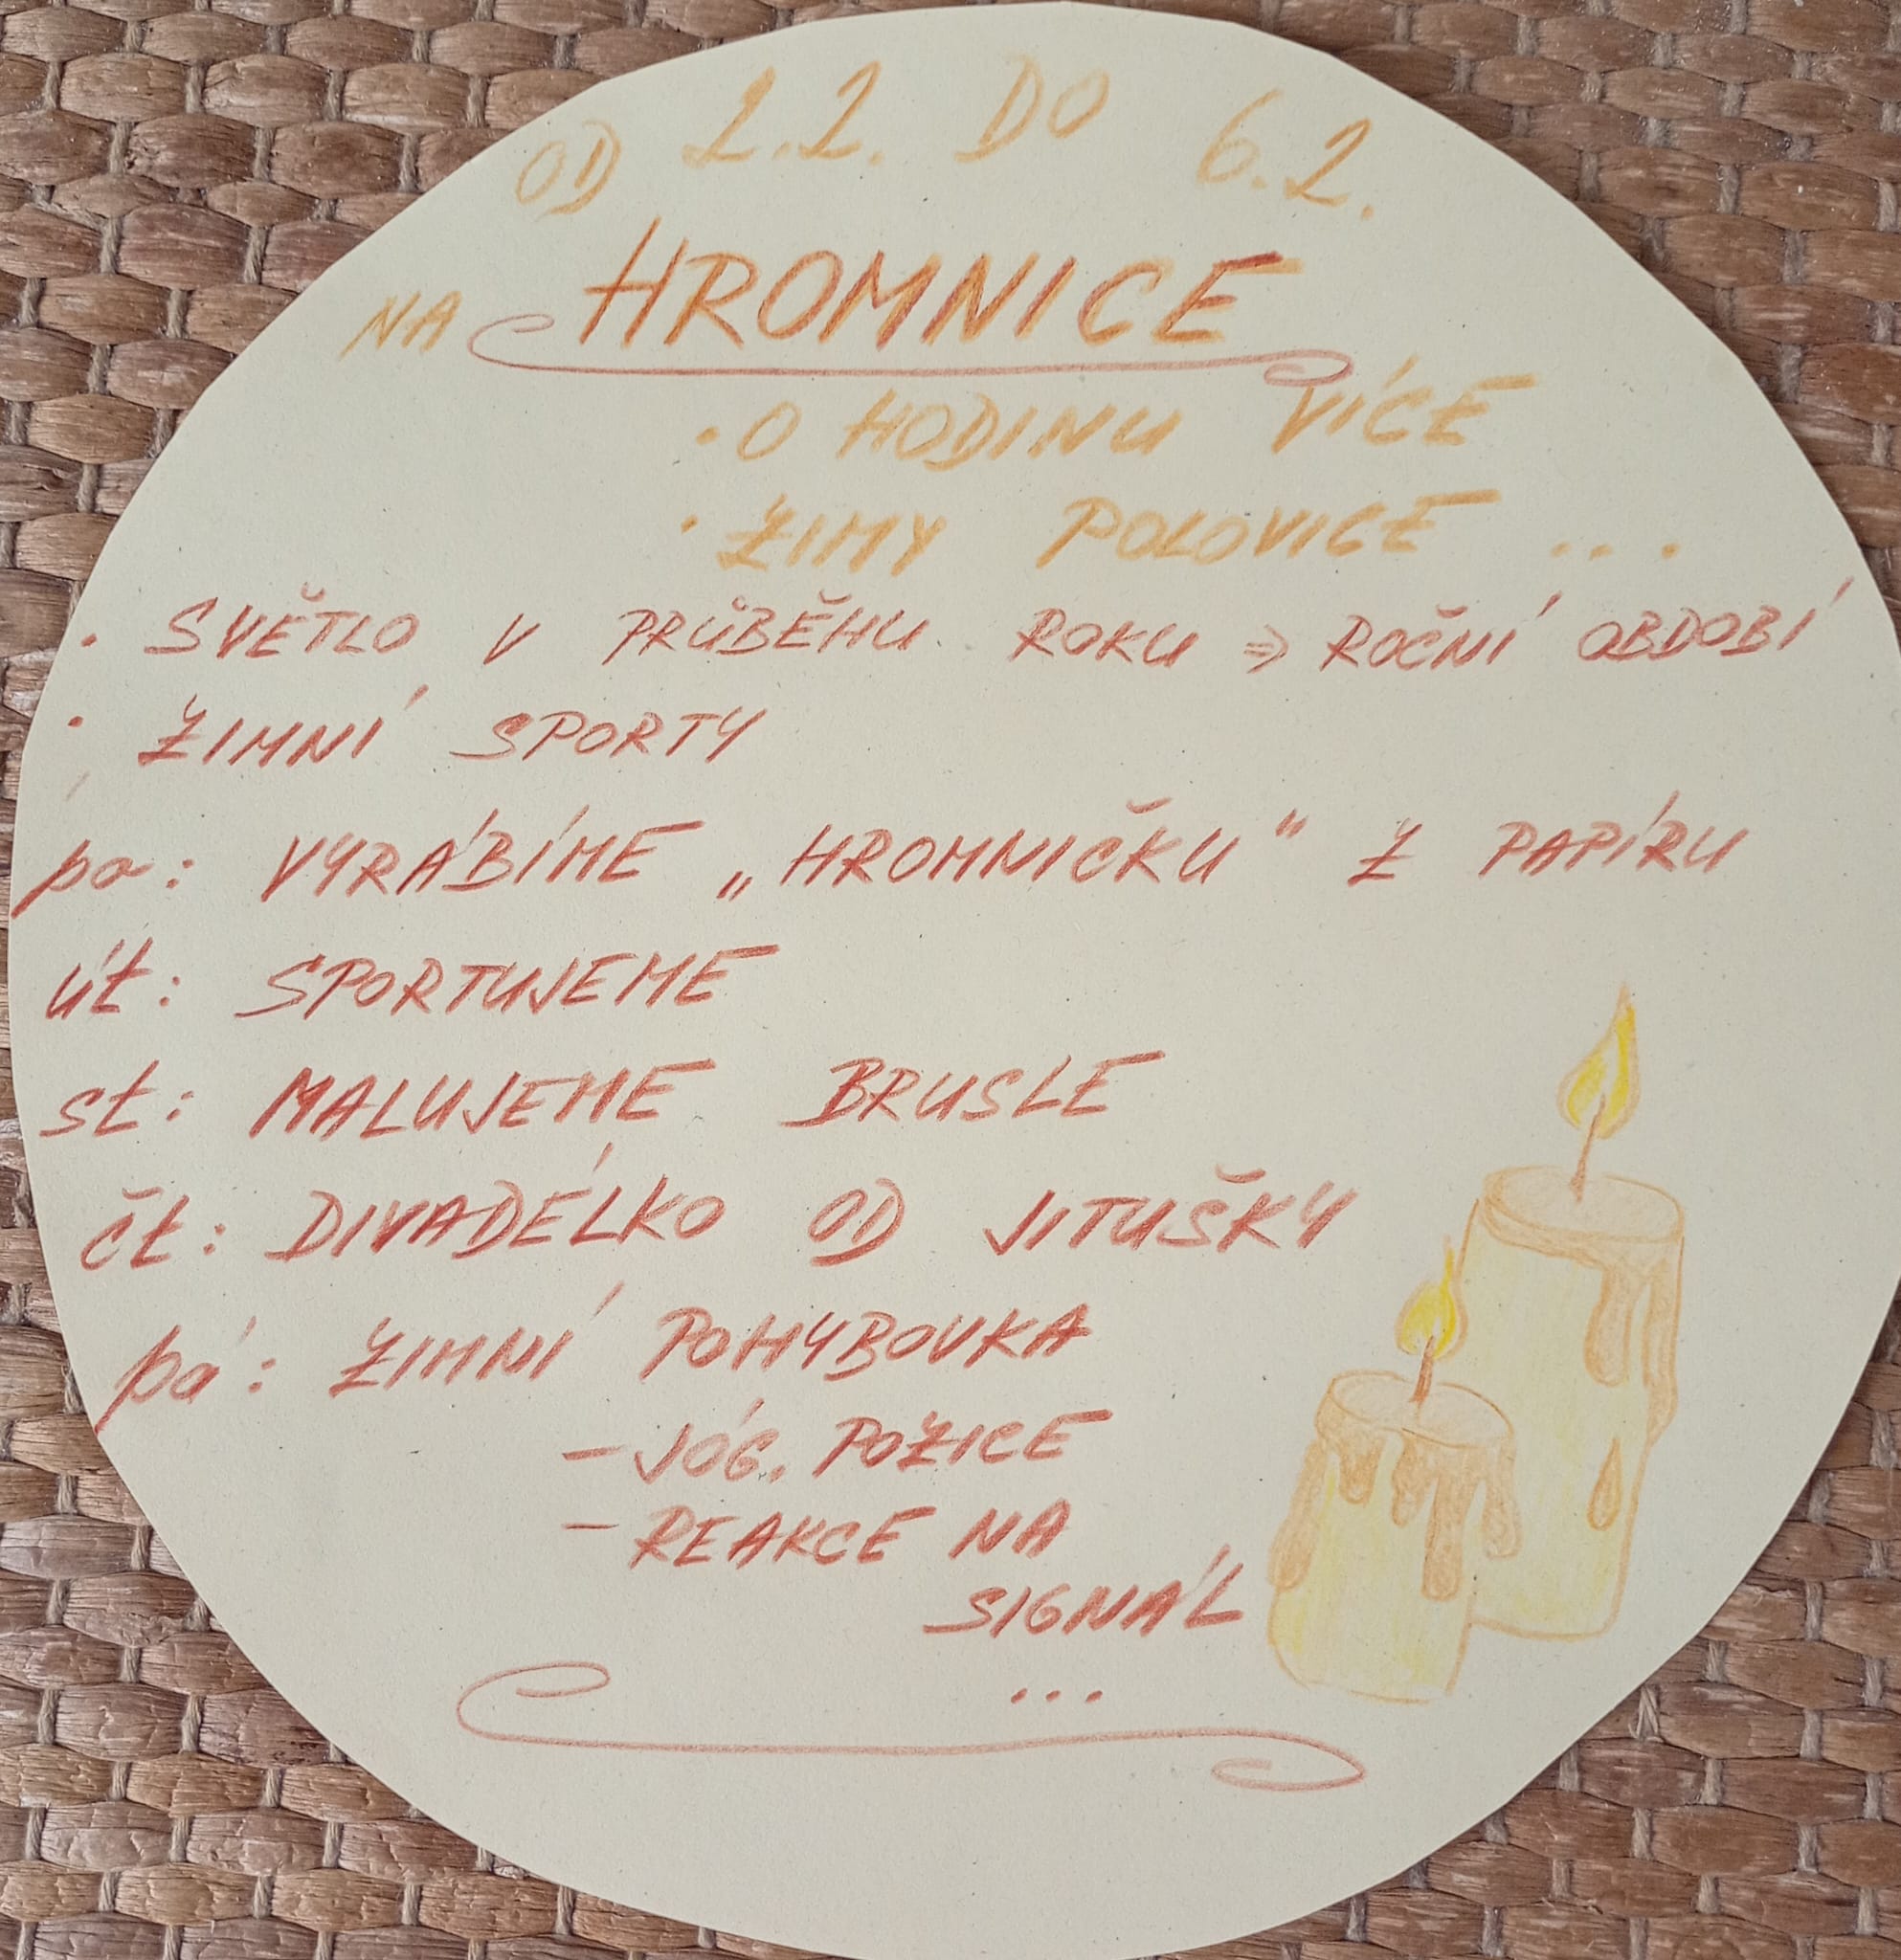 OD 2.2. DO 6.2.
NA HROMNICE
• O HODINU VÍCE
• ZIMY POLOVICE ...
• SVĚTLO V PRŮBĚHU ROKU ⇒ ROČNÍ OBDOBÍ
• ZIMNÍ SPORTY
po: VYRÁBÍME „HROMNIČKU" Z PAPÍRU
út: SPORTUJEME
st: MALUJEME BRUSLE
čt: DIVADÉLKO OD JITUŠKY
pá: ZIMNÍ POHYBOVKA
- JÓG. POZICE
- REAKCE NA
SIGNÁL
...